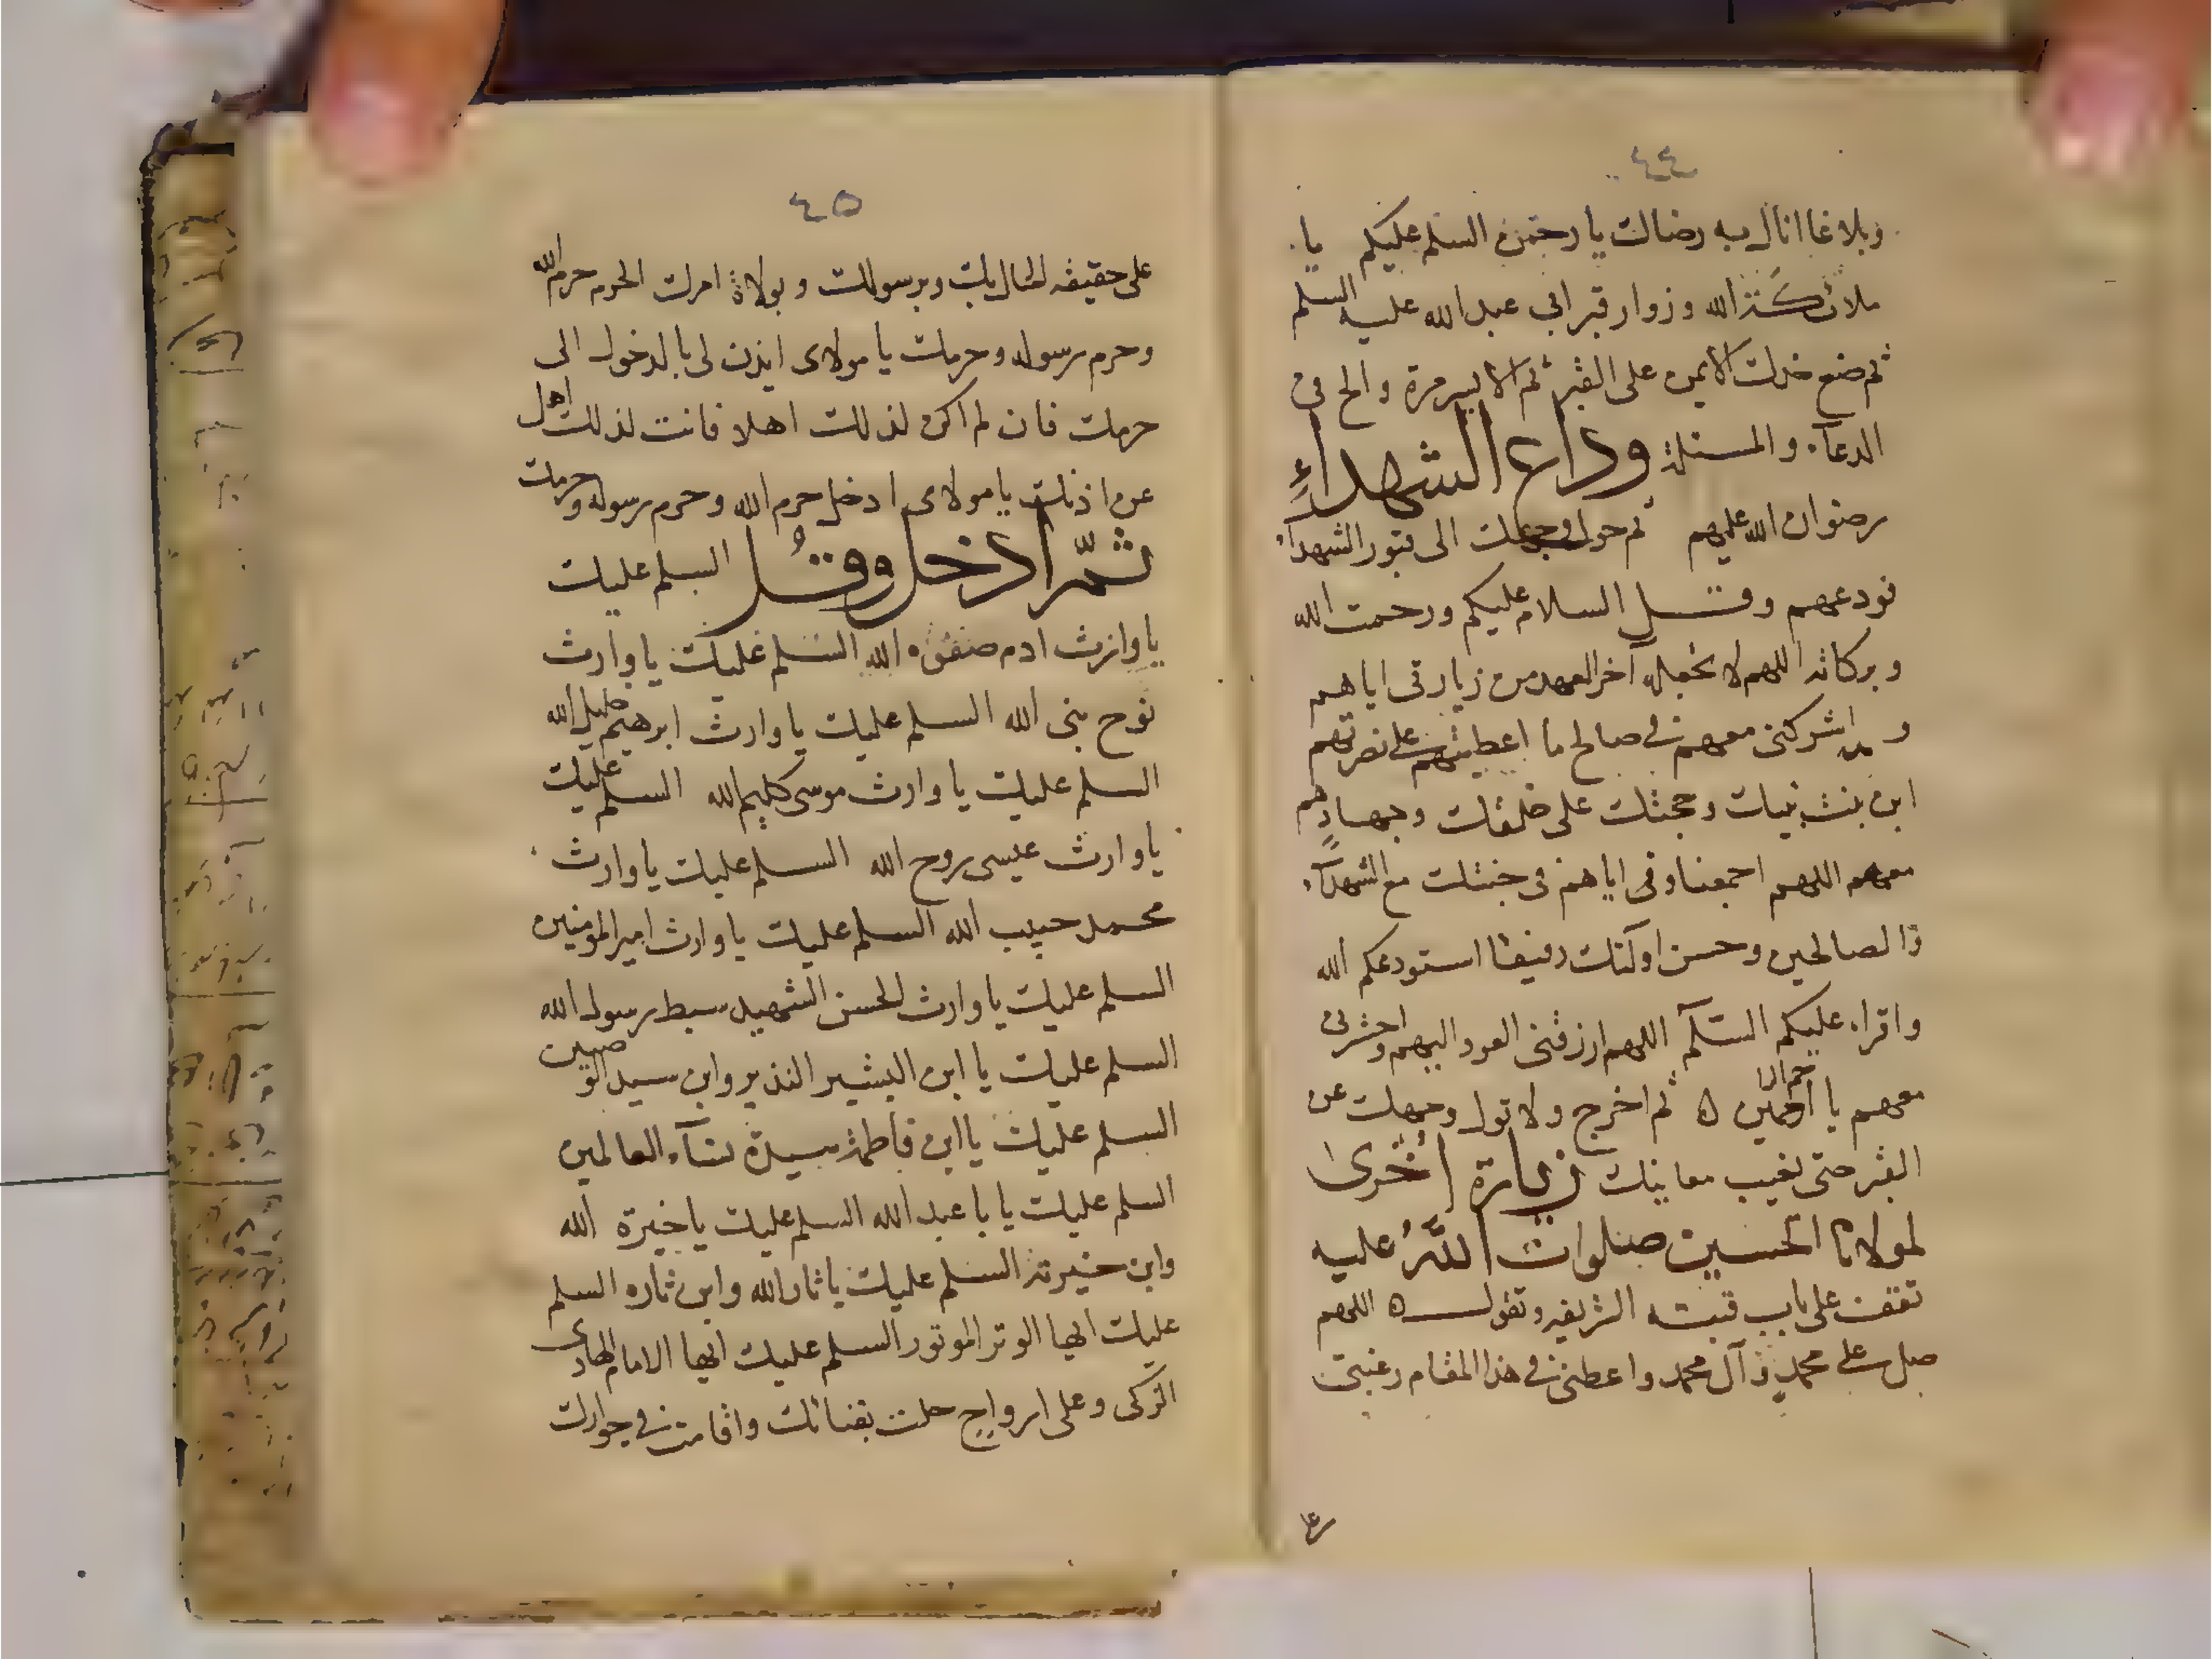 ٤٤
وبلاغا انال به رضاك يا رحمن السلم عليكم يا
ملائكة الله وزوار قبر ابي عبد الله عليه السلم
ثم ضع خدك الايمن على القبر ثم الايسر مرة والح في
الدعاء والمسئلة وداع الشهداءِ
رضوان الله عليهم ثم حول وجهك الى قبور الشهداء
فودعهم وقل السلام عليكم ورحمت الله
وبركاته اللهم لا تجعله آخر العهد من زيارتي اياهم
واشركني معهم في صالح ما اعطيتهم على نصرتهم
ابن بنت نبيك وحجتك على خلقك وجهادهم
معهم اللهم اجمعنا واياهم في جنتك مع الشهداء
والصالحين وحسن اولئك رفيقا استودعكم الله
واقراء عليكم السّلآم اللهم ارزقني العود اليهم واحشرني
معهم يا ارحم الراحمين ه ثم اخرج ولا تول وجهك عن
القبر حتى يغيب معاينك زيارة اخرى
لمولانا الحسين صلوات اللّهُ عليه
تقف على باب قبته الشريفه وتقول ه اللهم
صل على محمدٍ وآل محمد واعطني في هذا المقام رغبتي
٤٥
على حقيقه ايماني بك وبرسولك وبولاة امرك الحرم حرم الله
وحرم رسوله وحرمك يا مولاى ايذن لى بالدخول الى
حرمك فان لم اكن لذلك اهلا فانت لذلك اهل
عن اذنك يا مولاى ادخل حرم الله وحرم رسوله وحرمك
ثمّ ادخل وقُل السلم عليك
يا وارث ادم صفوه الله السلم عليك يا وارث
نوح نبى الله السلم عليك يا وارث ابرهيم خليل الله
السلم عليك يا وارث موسى كليم الله السلم عليك
يا وارث عيسى روح الله السلم عليك يا وارث
محمد حبيب الله السلم عليك يا وارث امير المومنين
السلم عليك يا وارث الحسن الشهيد سبط رسول الله
السلم عليك يا ابن البشير النذير وابن سيد الوصيين
السلم عليك يا ابن فاطمة سيدة نسآء العالمين
السلم عليك يا با عبد الله السلم عليك يا خيرة الله
وابن خيرته السلم عليك يا ثار الله وابن ثاره السلم
عليك ايها الوتر الموتور السلم عليك ايها الامام الهادى
الزكى وعلى ارواحٍ حلت بفنائك واقامت في جوارك